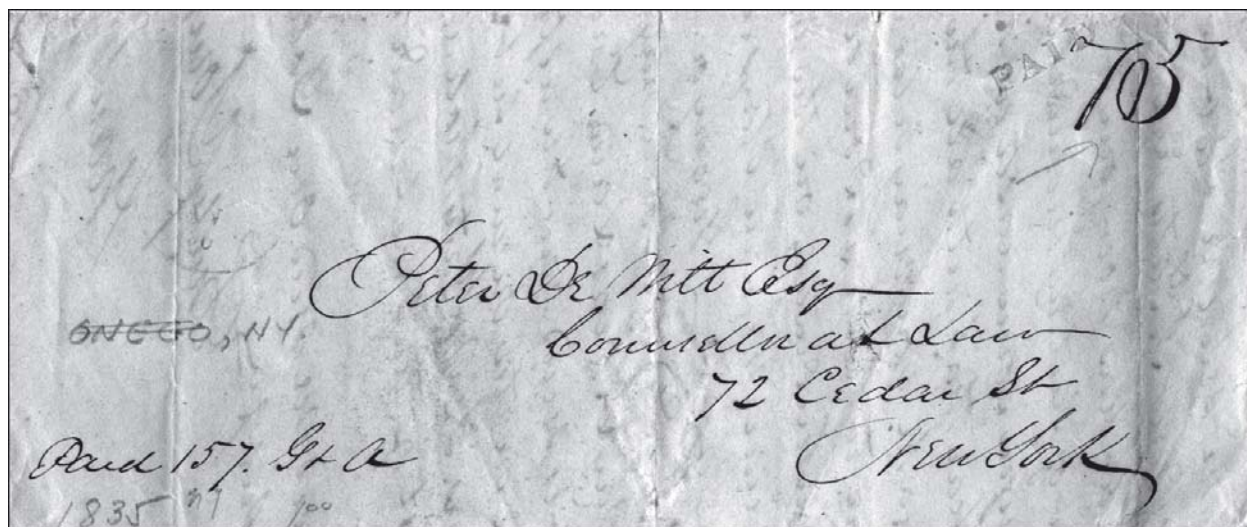 PAID
75
Peter De Witt Esq
Counsellor at Law
72 Cedar St
New York
OWEGO, NY.
Paid 157. G & A
1835 NY